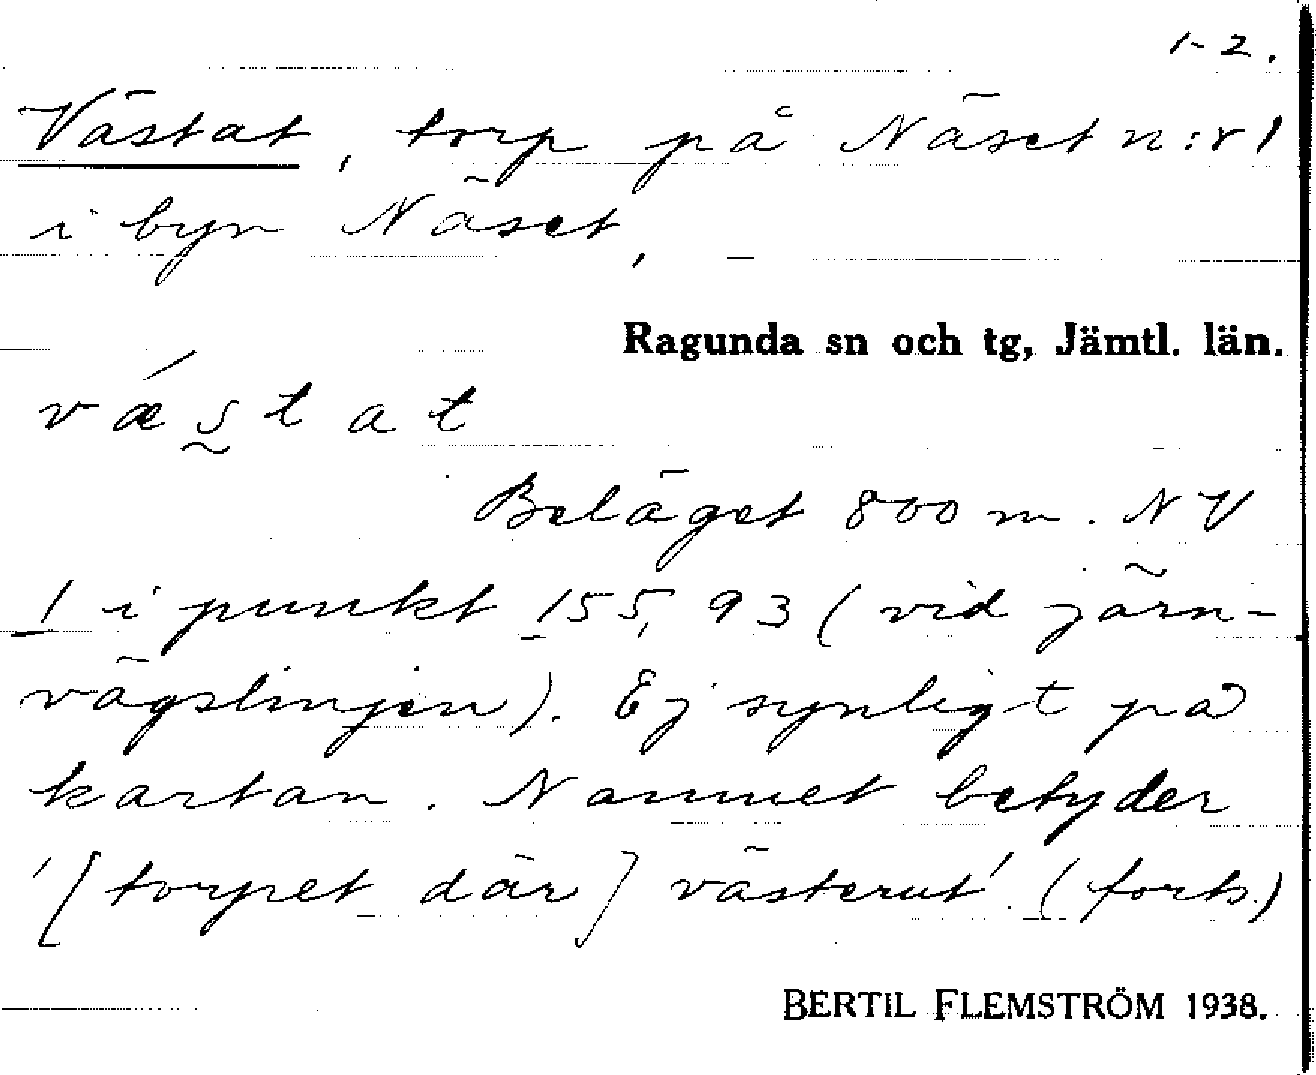 1-2.
Västat, torp på Näset n:r 1
i byn Näset,
Ragunda sn och tg, Jämtl. län.
vǽstat
Beläget 800 m. NV
1 i punkt 155,93 (vid järn-
vägslinjen). Ej synligt på
kartan. Namnet betyder
'[torpet där] västerut'. (forts.)
BERTIL FLEMSTRÖM 1938.